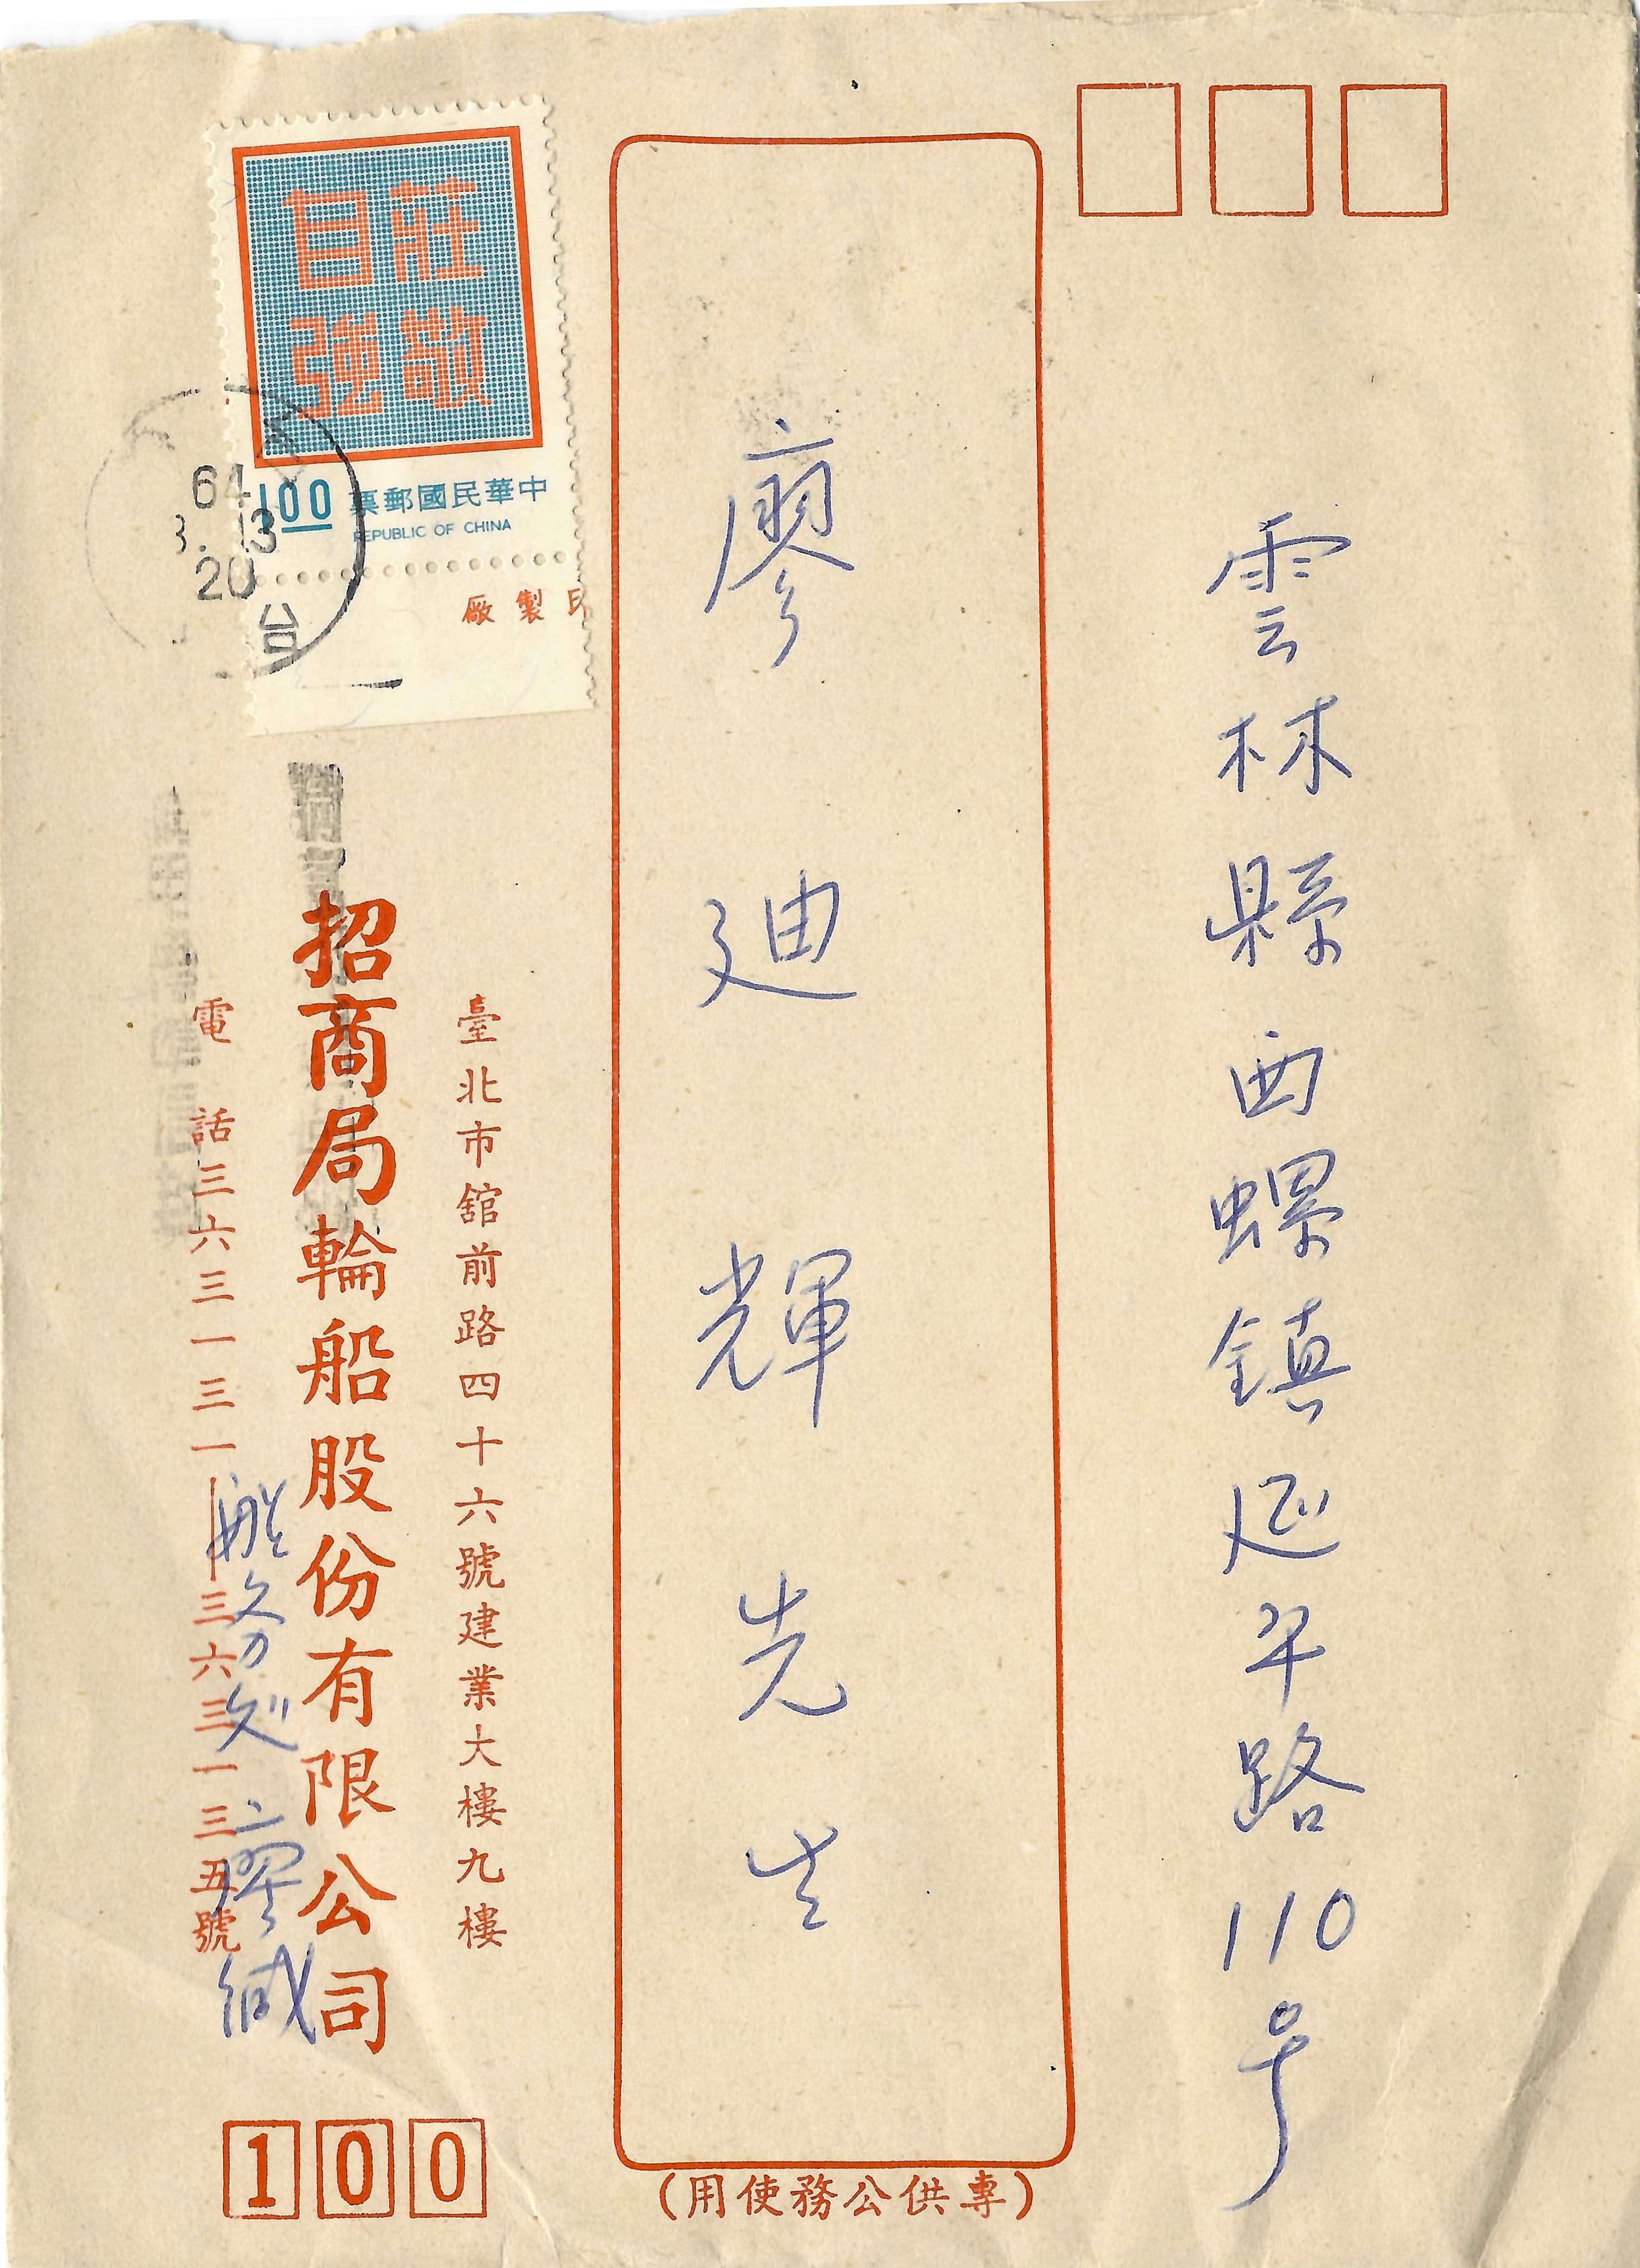 雲林縣西螺鎮延平路110号
廖迪輝先生
(專供公務使用)
莊敬
自強
1.00
中華民國郵票
REPUBLIC OF CHINA
印製廠
64
3. 13
20
台
臺北市舘前路四十六號建業大樓九樓
招商局輪船股份有限公司
電話三六三一三一—三六三一三五號
船務処 廖緘
100